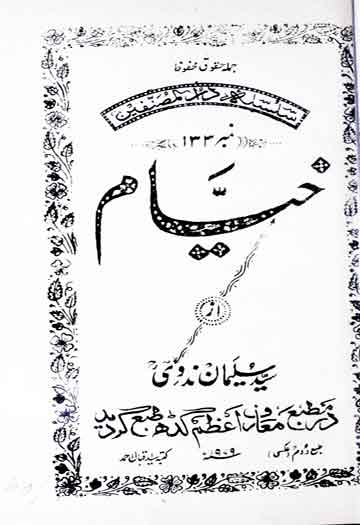 جملہ حقوق محفوظ
سلسلہ دارالمصنفین
نمبر ۱۳۴
خیّام
از
سید سلیمان ندوی
در مطبع معارف اعظم گڈھ طبع گردید
طبع دوم (عکسی) ۱۹۰۹ء